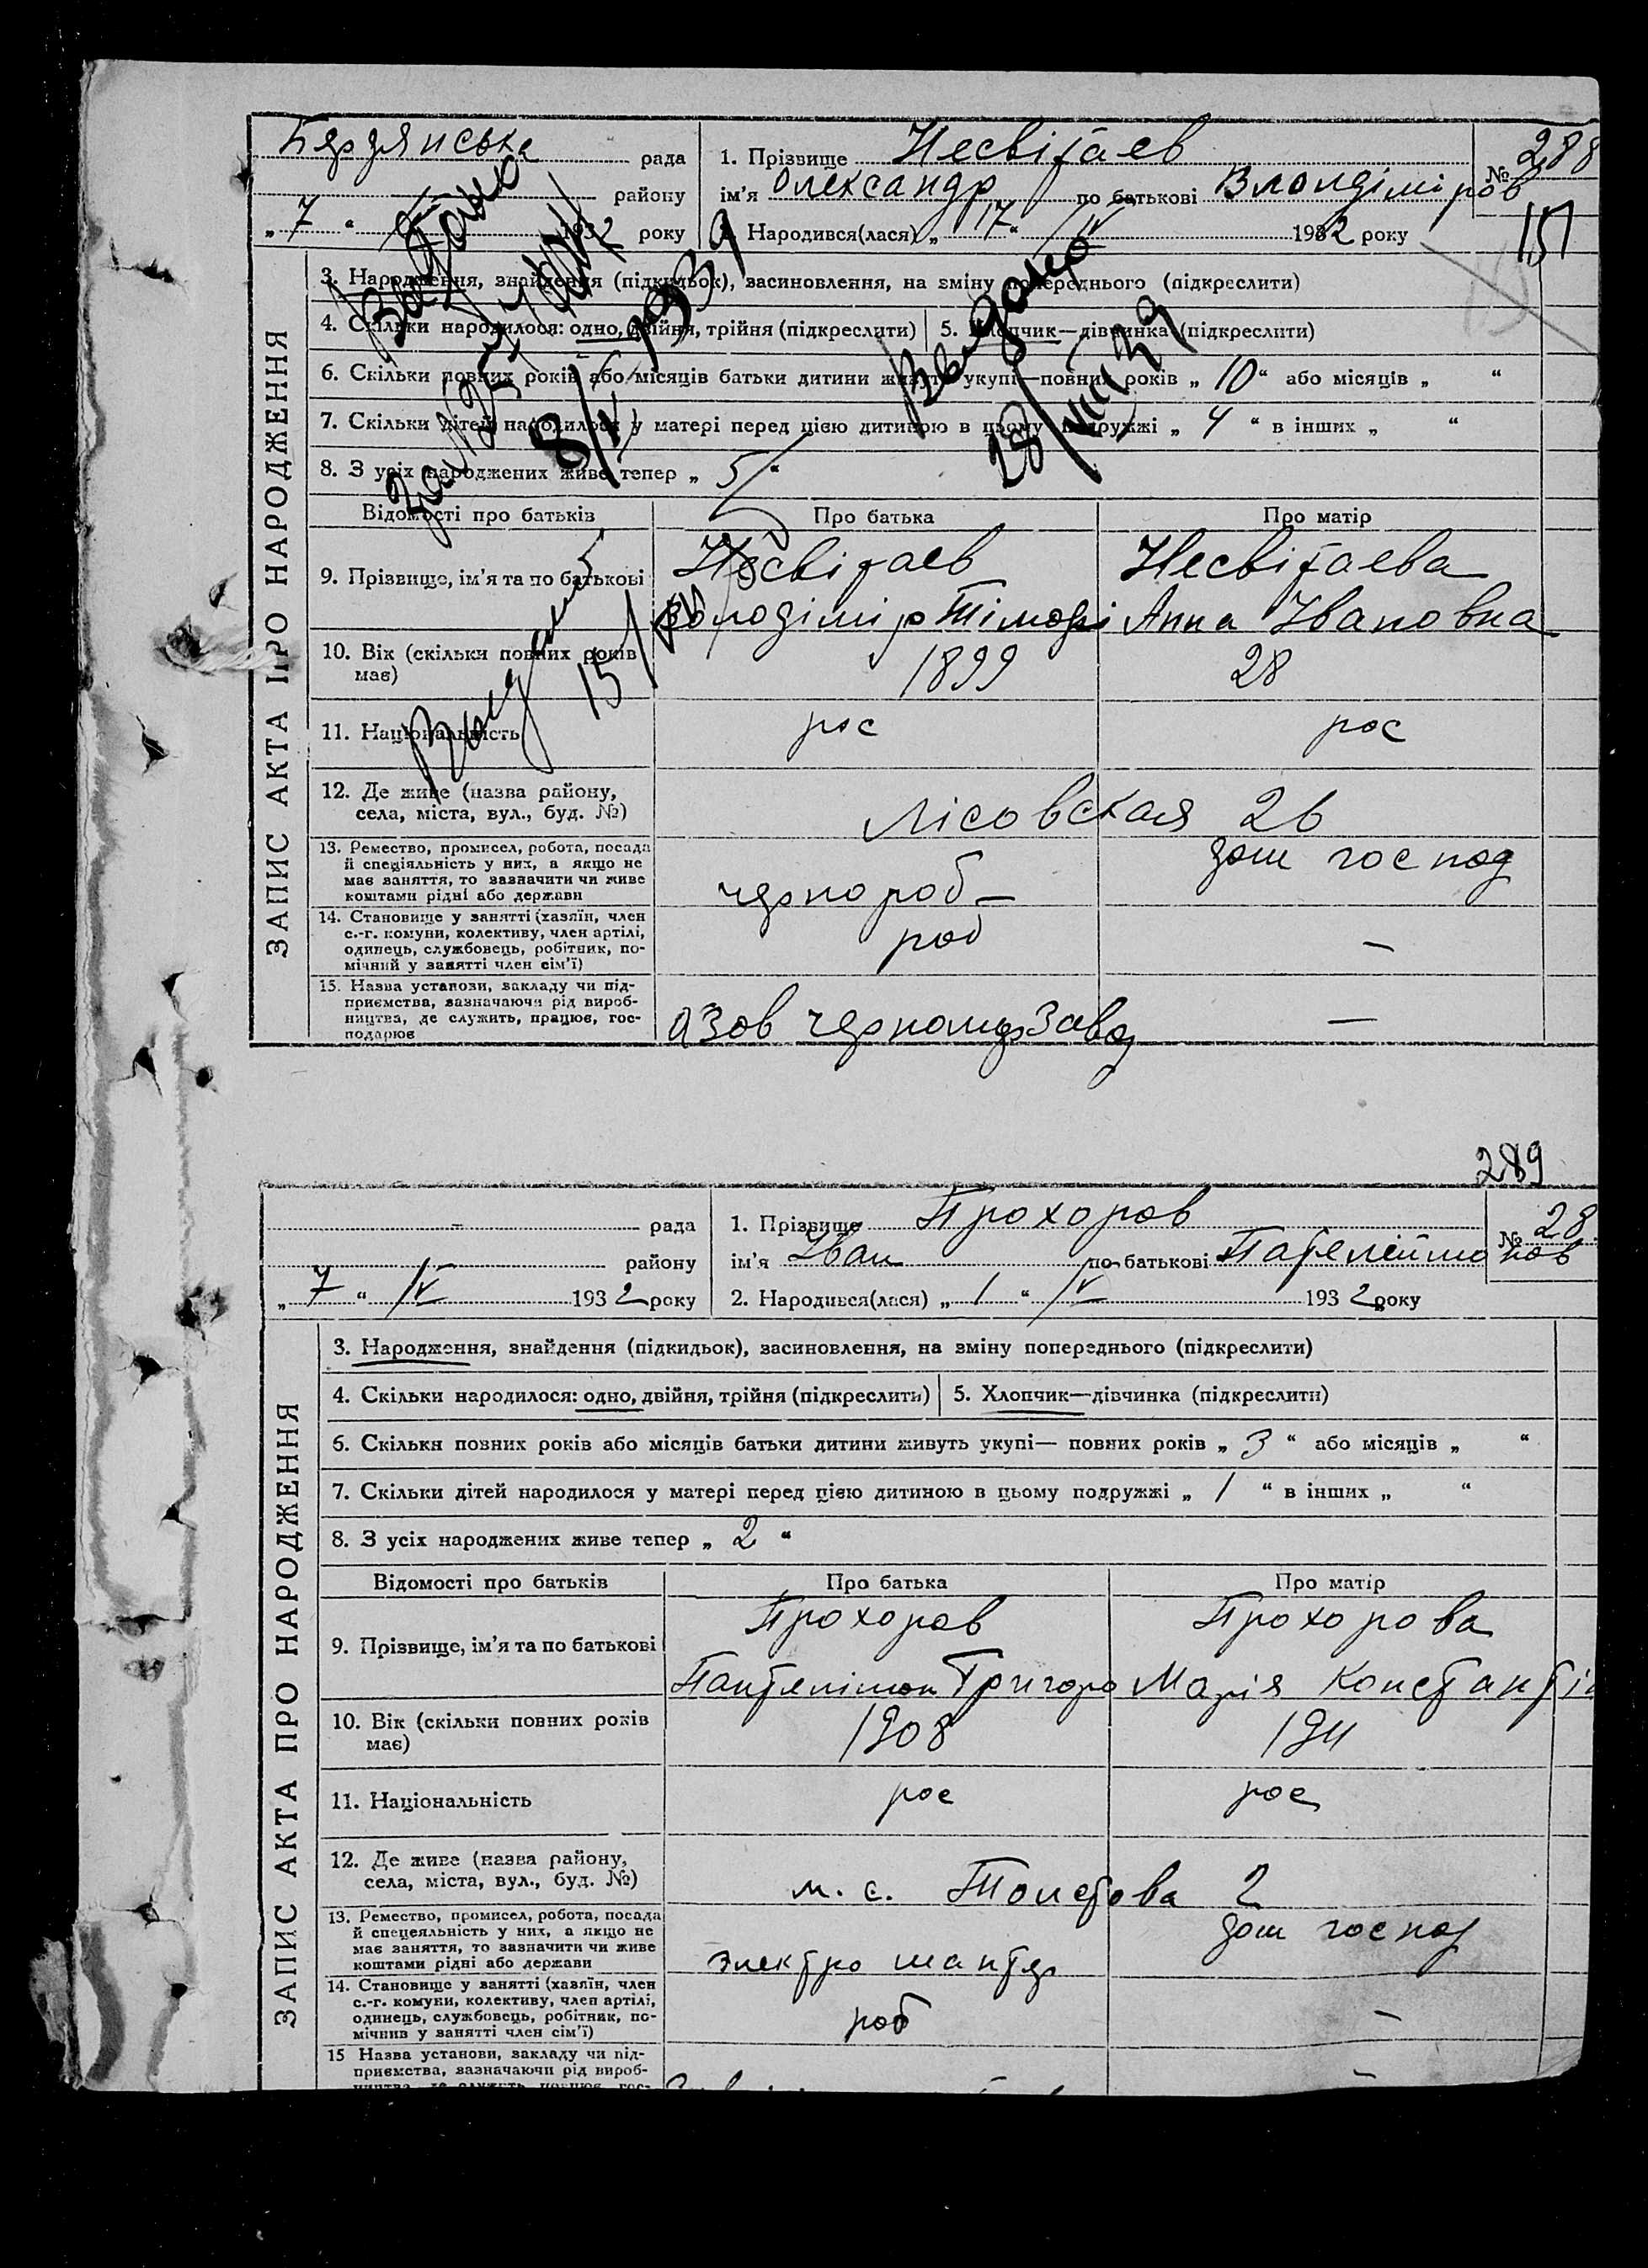 Бердянська рада
району
„ 7 “ 1932 року
1. Прізвище Несвітаев
№ 288
ім'я Олександр по батькові Влолдіміров
2. Народився(лася) „ 17 “ IV 1932 року
151
ЗАПИС АКТА ПРО НАРОДЖЕННЯ
3. Народження, знайдення (підкидьок), засиновлення, на зміну попереднього (підкреслити)
4. Скільки народилося: одно, двійня, трійня (підкреслити) 5. Хлопчик—дівчинка (підкреслити)
6. Скільки повних років або місяців батьки дитини живуть укупі—повних років „ 10 “ або місяців „ “
7. Скільки дітей народилося у матері перед цією дитиною в цьому подружжі „ 4 “ в інших „ “
8. З усіх народжених живе тепер „ 5 “
Видано
8/ 1939
Видано
28/VIII 39
15/
Відомості про батьків Про батька Про матір
9. Прізвище, ім'я та по батькові
Несвітаев Несвітаева
Володімір Тімофі Анна Івановна
10. Вік (скільки повних років має) 1899 28
11. Національність рос рос
12. Де живе (назва району, села, міста, вул., буд. №) Лісовская 26
13. Ремество, промисел, робота, посада й спеціяльність у них, а якщо не має заняття, то зазначити чи живе коштами рідні або держави чернороб дом господ
14. Становище у занятті (хазяїн, член с.-г. комуни, колективу, член артілі, одинець, службовець, робітник, помічний у занятті член сім'ї) роб —
15. Назва установи, закладу чи підприємства, зазначаючи рід виробництва, де служить, працює, господарює Азов —
289
рада
району
„ 7 “ IV 1932 року
1. Прізвище Прохоров
№ 28
ім'я Іван по батькові Пателіймонов
2. Народився(лася) „ 1 “ IV 1932 року
ЗАПИС АКТА ПРО НАРОДЖЕННЯ
3. Народження, знайдення (підкидьок), засиновлення, на зміну попереднього (підкреслити)
4. Скільки народилося: одно, двійня, трійня (підкреслити) 5. Хлопчик—дівчинка (підкреслити)
6. Скільки повних років або місяців батьки дитини живуть укупі— повних років „ 3 “ або місяців „ “
7. Скільки дітей народилося у матері перед цією дитиною в цьому подружжі „ 1 “ в інших „ “
8. З усіх народжених живе тепер „ 2 “
Відомості про батьків Про батька Про матір
9. Прізвище, ім'я та по батькові
Прохоров Прохорова
Пантелімон Григоро Марія Константін
10. Вік (скільки повних років має) 1908 1911
11. Національність рос рос
12. Де живе (назва району, села, міста, вул., буд. №) м. с. Толстова 2
13. Ремество, промисел, робота, посада й спецеяльність у них, а якщо не має заняття, то зазначити чи живе коштами рідні або держави электро мантер дом господ
14. Становище у занятті (хазяїн, член с.-г. комуни, колективу, член артілі, одинець, службовець, робітник, помічний у занятті член сім'ї) роб —
15 Назва установи, закладу чи підприємства, зазначаючи рід вироб- —